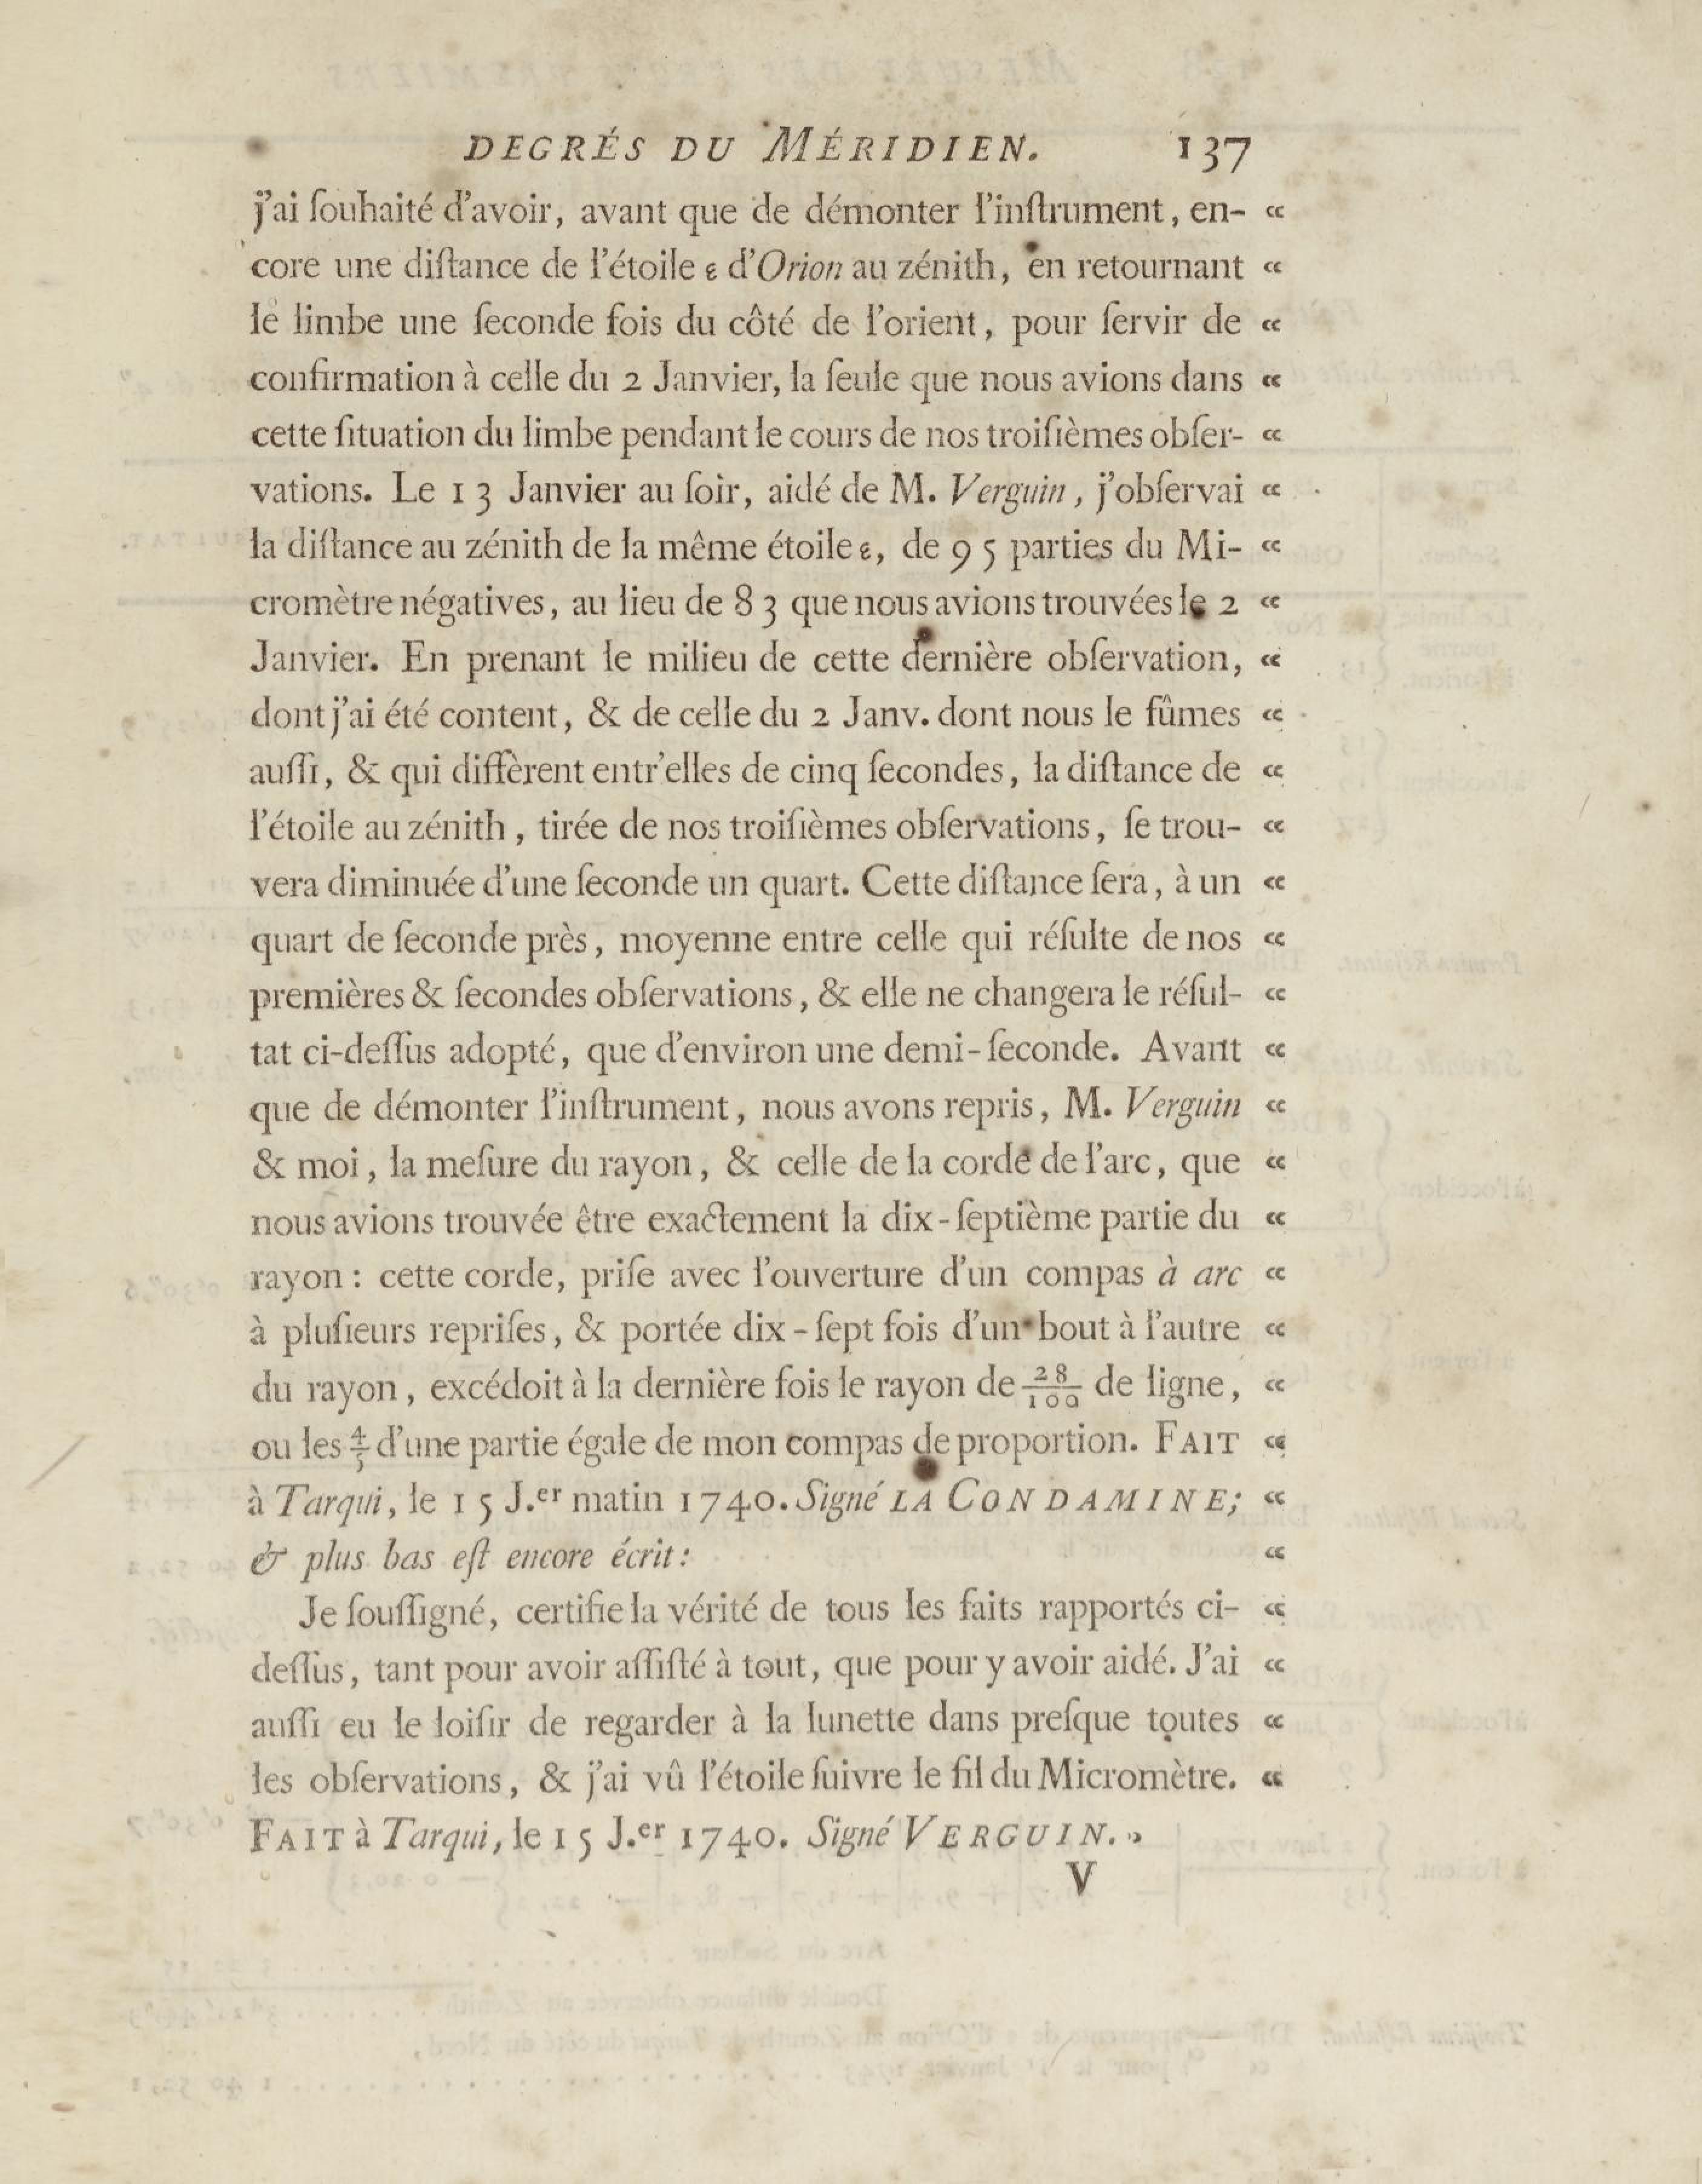 DEGRÉS DU MÉRIDIEN. 137
j'ai ſouhaité d'avoir, avant que de démonter l'inſtrument, en- «
core une diſtance de l'étoile ε d'Orion au zénith, en retournant «
le limbe une ſeconde fois du côté de l'orient, pour ſervir de «
confirmation à celle du 2 Janvier, la ſeule que nous avions dans «
cette ſituation du limbe pendant le cours de nos troiſièmes obſer- «
vations. Le 13 Janvier au ſoir, aidé de M. Verguin, j'obſervai «
la diſtance au zénith de la même étoile ε, de 95 parties du Mi- «
cromètre négatives, au lieu de 83 que nous avions trouvées le 2 «
Janvier. En prenant le milieu de cette dernière obſervation, «
dont j'ai été content, & de celle du 2 Janv. dont nous le fûmes «
auſſi, & qui diffèrent entr'elles de cinq ſecondes, la diſtance de «
l'étoile au zénith, tirée de nos troiſièmes obſervations, ſe trou- «
vera diminuée d'une ſeconde un quart. Cette diſtance ſera, à un «
quart de ſeconde près, moyenne entre celle qui réſulte de nos «
premières & ſecondes obſervations, & elle ne changera le réſul- «
tat ci-deſſus adopté, que d'environ une demi-ſeconde. Avant «
que de démonter l'inſtrument, nous avons repris, M. Verguin «
& moi, la meſure du rayon, & celle de la corde de l'arc, que «
nous avions trouvée être exactement la dix-ſeptième partie du «
rayon : cette corde, priſe avec l'ouverture d'un compas à arc «
à pluſieurs repriſes, & portée dix-ſept fois d'un bout à l'autre «
du rayon, excédoit à la dernière fois le rayon de 28/100 de ligne, «
ou les 4/5 d'une partie égale de mon compas de proportion. FAIT «
à Tarqui, le 15 J.er matin 1740. Signé LA CONDAMINE; «
& plus bas eſt encore écrit : «
Je ſouſſigné, certifie la vérité de tous les faits rapportés ci- «
deſſus, tant pour avoir aſſiſté à tout, que pour y avoir aidé. J'ai «
auſſi eu le loiſir de regarder à la lunette dans preſque toutes «
les obſervations, & j'ai vû l'étoile ſuivre le fil du Micromètre. «
FAIT à Tarqui, le 15 J.er 1740. Signé VERGUIN. »
V